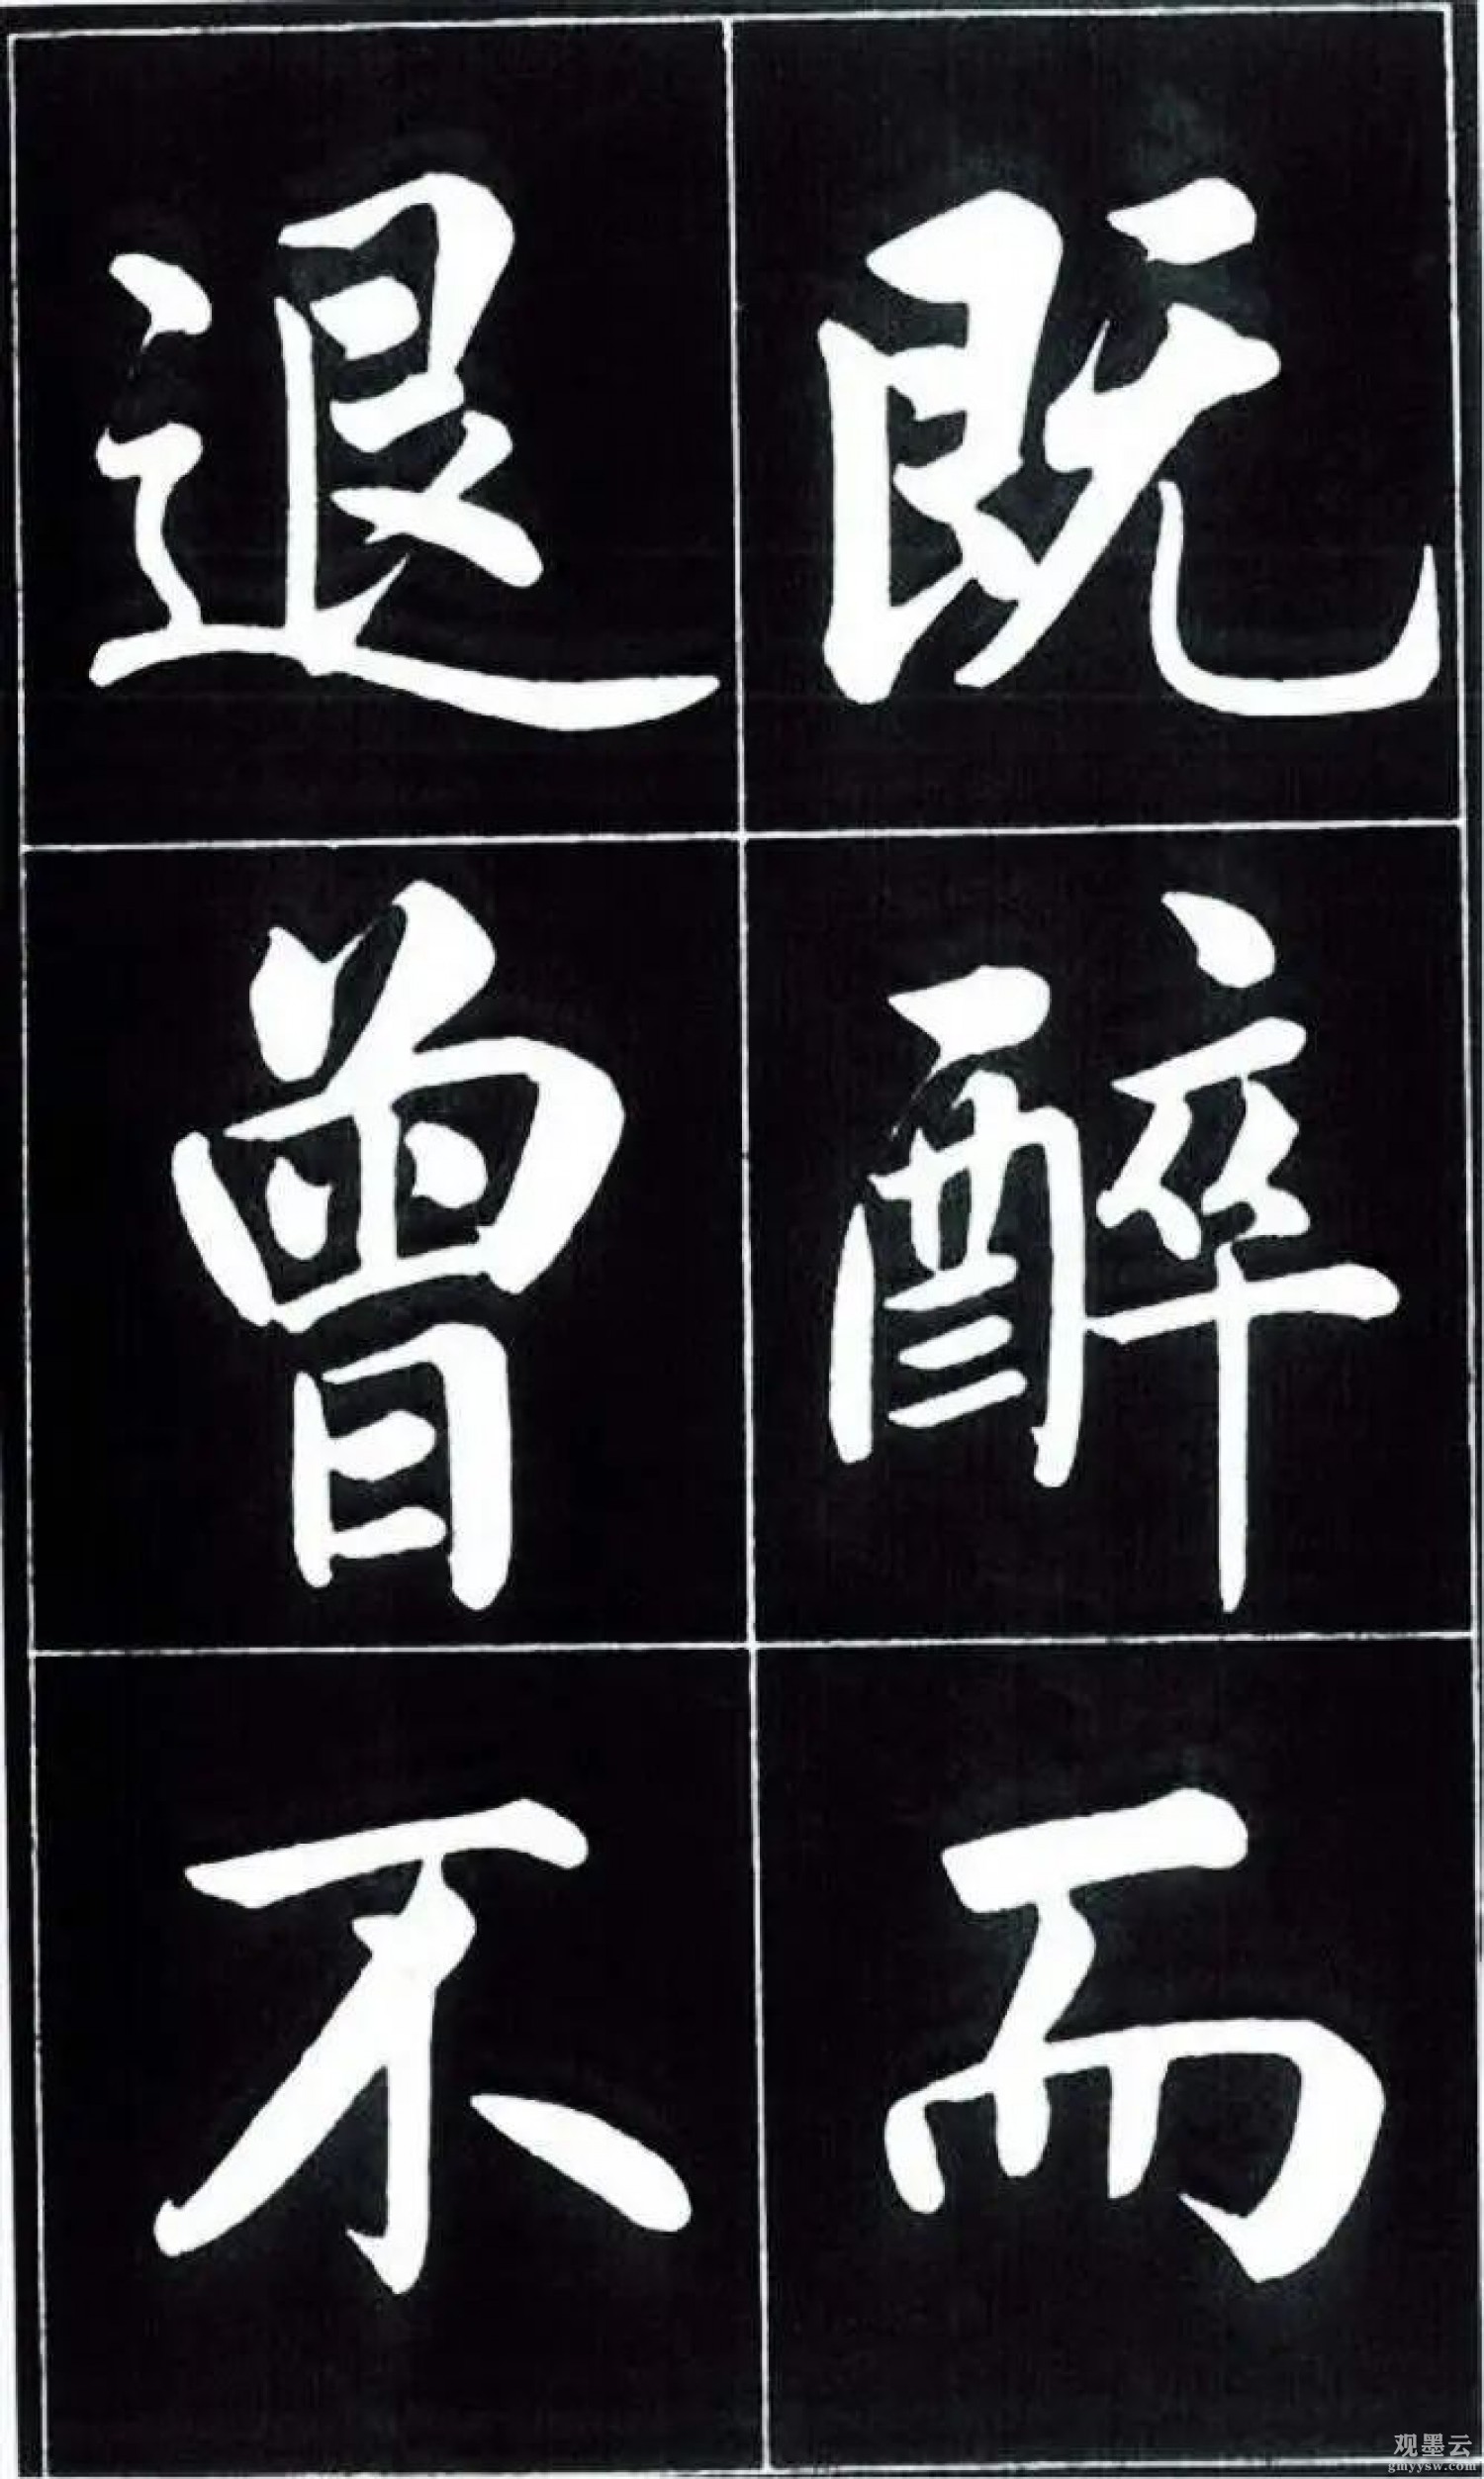 既醉而
退曾不
观墨云
gmyysw.com